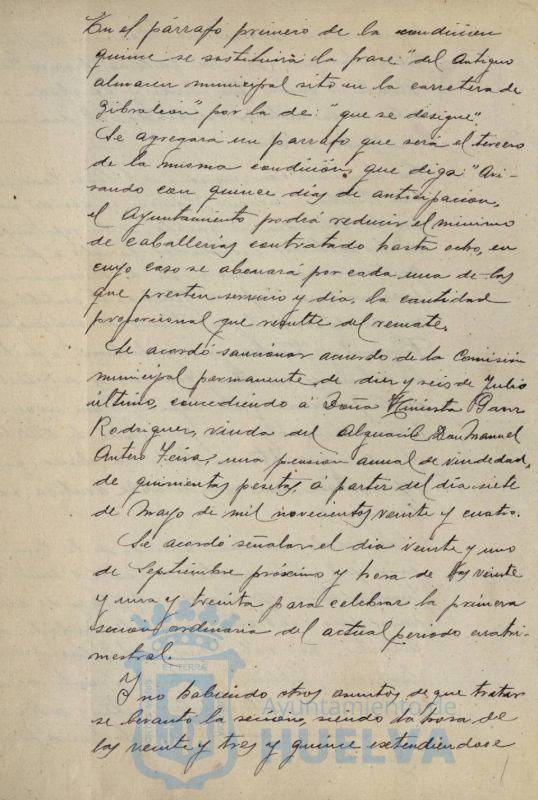 En el párrafo primero de la condición
quince se sustituirá la frase: "del Antiguo
almacen municipal sito en la carretera de
Gibraleón" por la de: "que se designe".
Se agregará un parrafo que será el tercero
de la misma condición, que diga: "Avi-
sando con quince dias de anticipacion,
el Ayuntamiento podrá reducir el minimo
de caballerias contratado hasta ocho, en
cuyo caso se abonará por cada una de las
que presten servicio y dia, la cantidad
proporcional que resulte del remate.
Se acordó sancionar acuerdo de la Comisión
municipal permanente, de diez y seis de Julio
último, concediendo á Doña
Rodriguez, viuda del Alguacil Don Manuel
Antero Feria, una pension anual de viudedad,
de quinientas pesetas, á partir del día siete
de Mayo de mil novecientos veinte y cuatro.
Se acordó señalar el dia veinte y uno
de Septiembre próximo y hora de las veinte
y una y treinta para celebrar la primera
sesion ordinaria del actual periodo cuatri-
mestral.
Y no habiendo otros asuntos de que tratar
se levantó la sesion, siendo la hora de
las veinte y tres y quince, extendiendose
Ayuntamiento de
HUELVA